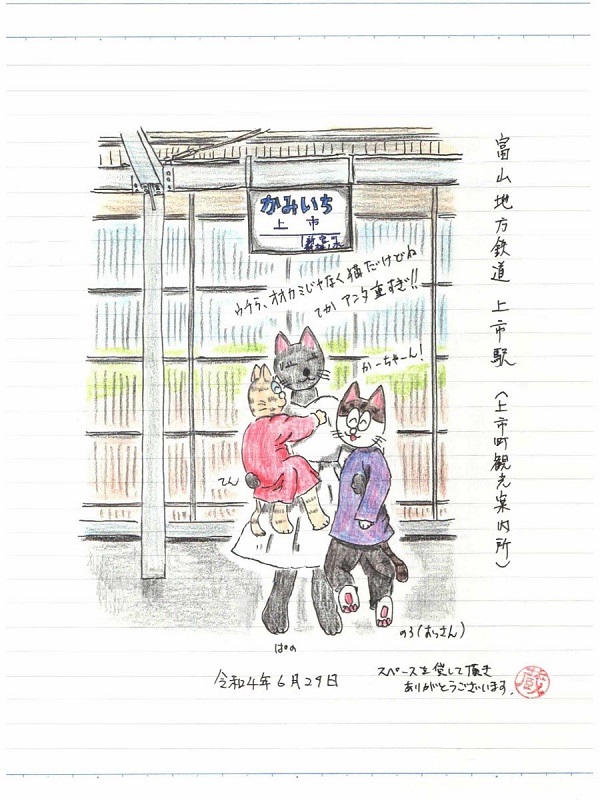 富山地方鉄道 上市駅 (上市町観光案内所)
かみいち
上市
ウチら、オオカミじゃなく猫だけどね
てか アンタ重すぎ!!
かーちゃーん!
てん
ぱの
のろ(おっさん)
令和4年6月29日
スペースを貸して頂き
ありがとうございます。
蔵